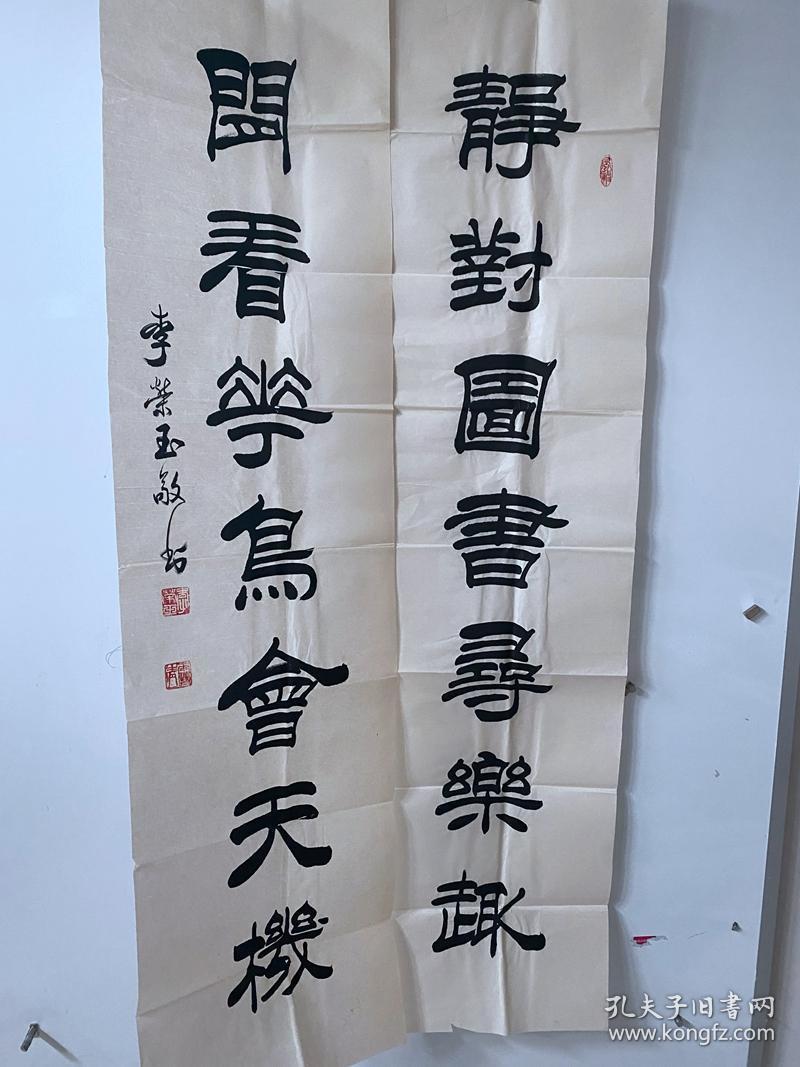 靜對圖書尋樂趣
閒看華鳥會天機
李榮玉敬书
孔夫子旧書网
www.kongfz.com